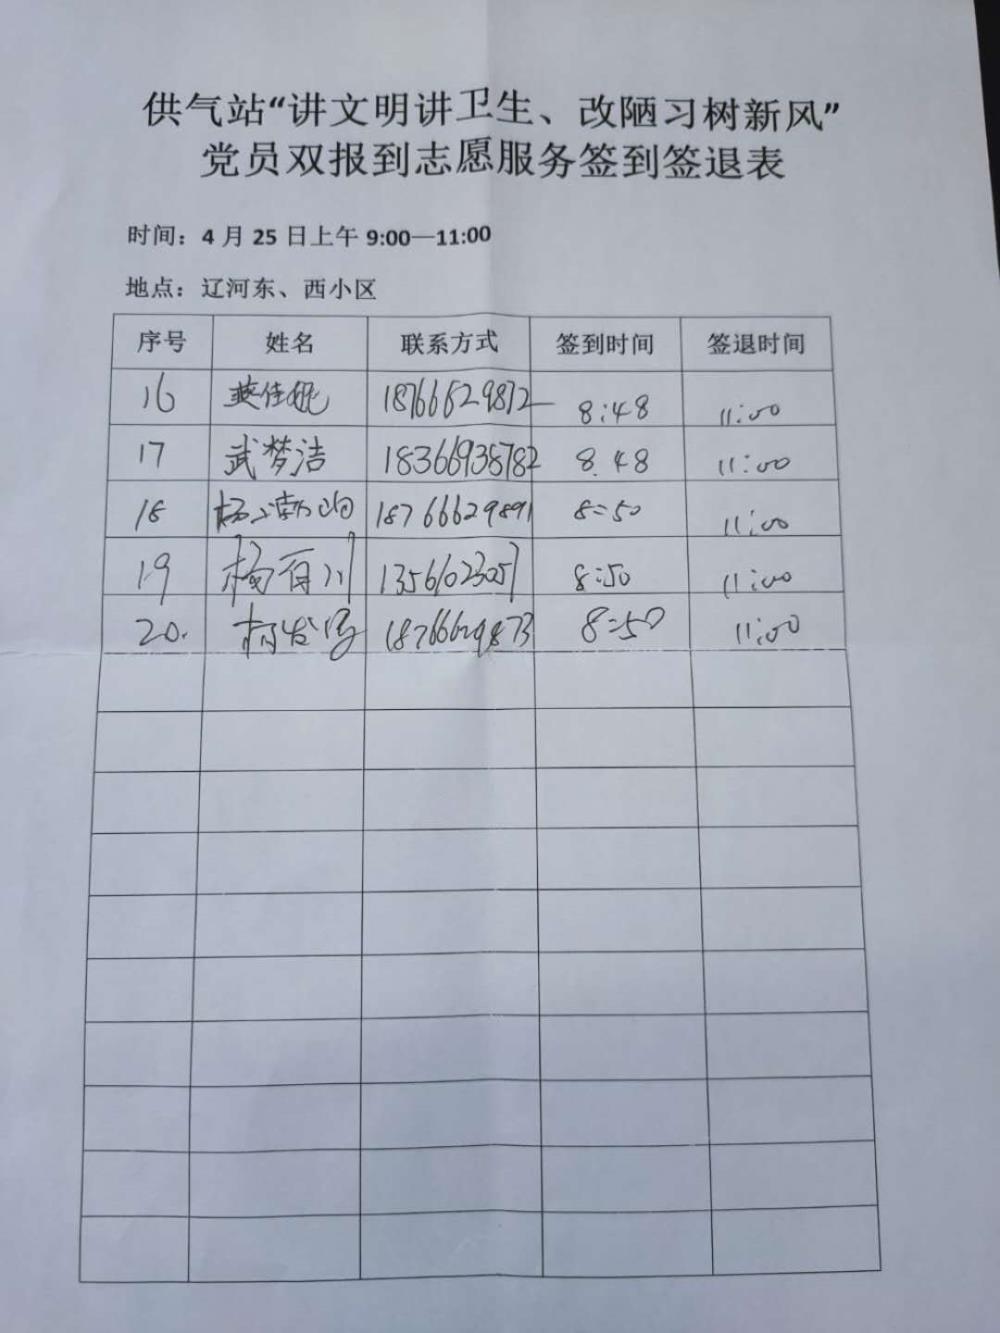 供气站“讲文明讲卫生、改陋习树新风”
党员双报到志愿服务签到签退表
时间：4 月 25 日上午 9:00—11:00
地点：辽河东、西小区
序号 姓名 联系方式 签到时间 签退时间
16 18766629872 8:48 11:00
17 武梦洁 18366938782 8:48 11:00
18 18766629891 8:50 11:00
19 杨百川 13561023051 8:50 11:00
20. 18766629873 8:50 11:00